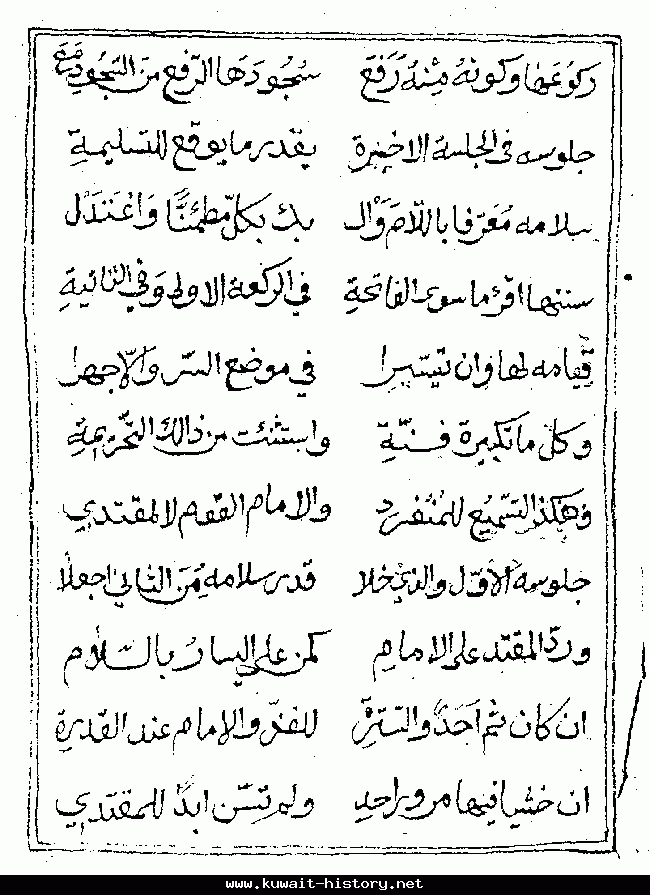 ركوعها وكونه منه رفع سجودها الرفع من السجود مع
جلوسه في الجلسة الاخيرة بقدر ما يوقع للتسليمة
سلامه معرفا باللام وال بك بكل مطمئنا واعتدل
سننها اقرء ما سوى الفاتحة في الركعة الاولى وفي الثانية
قيامه لها وان تيسيرا في موضع السر والا جهرا
وكل ما تكبيرة فسنة واستثنت من ذالك التحريمة
وهكذ التسميع للمنفرد والامام القوم لا لمقتدي
جلوسه الاول والذي خلا قدر سلامه من الثاني اجعلا
ورد المقتد على الامام كمن على اليسار بالسلام
ان كان ثم احد والسترة للفذ والامام عند القدرة
ان خشيا فيها مرور احد ولم تسن ابدا للمقتدي
www.kuwait-history.net